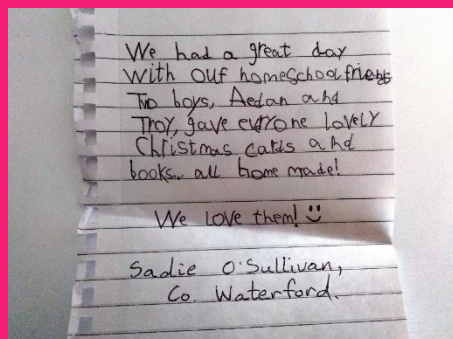 We had a great day
with our homeschool friends
Two boys, Aedan and
Troy, gave everyone lovely
Christmas cards and
books.. all home made!
We love them! :)
Sadie O'Sullivan,
Co. Waterford.